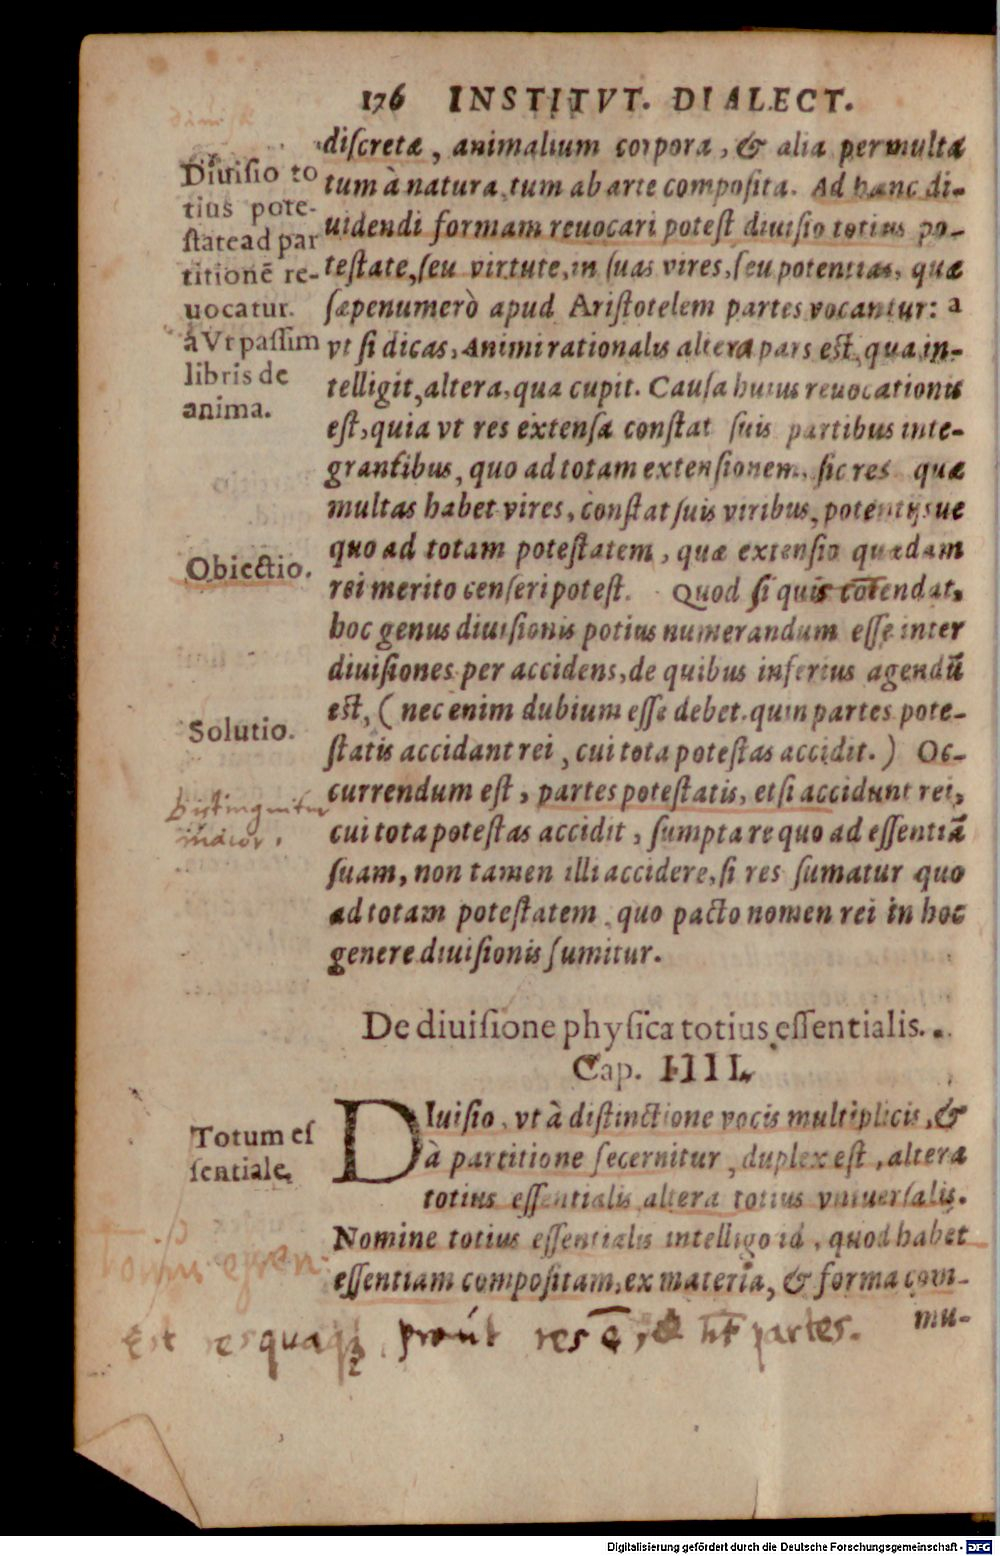 176 INSTITVT. DIALECT.
discretæ, animalium corpora, & alia permulta
tum à natura, tum ab arte composita. Ad hanc di-
uidendi formam reuocari potest diuisio totius po-
testate, seu virtute, in suas vires, seu potentias, quæ
sæpenumerò apud Aristotelem partes vocantur: a
vt si dicas, Animi rationalis altera pars est, qua in-
telligit, altera, qua cupit. Causa huius reuocationis
est, quia vt res extensæ constat suis partibus inte-
grantibus, quo ad totam extensionem, sic res quæ
multas habet vires, constat suis viribus, potentijsue
quo ad totam potestatem, quæ extensio quædam
rei merito censeri potest. Quod si quis cōtendat,
hoc genus diuisionis potius numerandum esse inter
diuisiones per accidens, de quibus inferius agendū
est, (nec enim dubium esse debet quin partes pote-
statis accidant rei, cui tota potestas accidit.) Oc-
currendum est, partes potestatis, etsi accidunt rei,
cui tota potestas accidit, sumpta re quo ad essentiā
suam, non tamen illi accidere, si res sumatur quo
ad totam potestatem, quo pacto nomen rei in hoc
genere diuisionis sumitur.
Diuisio to
tius pote-
state ad par
titionē re-
uocatur.
a Vt passim
libris de
anima.
Obiectio.
Solutio.
Distinguitur
maior.
De diuisione physica totius essentialis.
Cap. IIII.
DIuisio, vt à distinctione vocis multiplicis, &
à partitione secernitur, duplex est, altera
totius essentialis altera totius vniuersalis.
Nomine totius essentialis intelligo id, quod habet
essentiam compositam, ex materia, & forma com-
mu-
Totum es
sentiale,
Totius essen:
Est res quaeq; prout res ē, & ht partes.
Digitalisierung gefördert durch die Deutsche Forschungsgemeinschaft - DFG